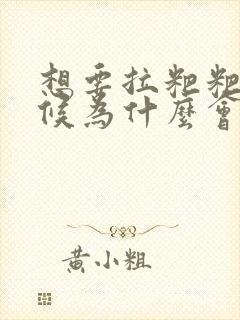 想要拉粑粑
候為什麼會
黃小粗